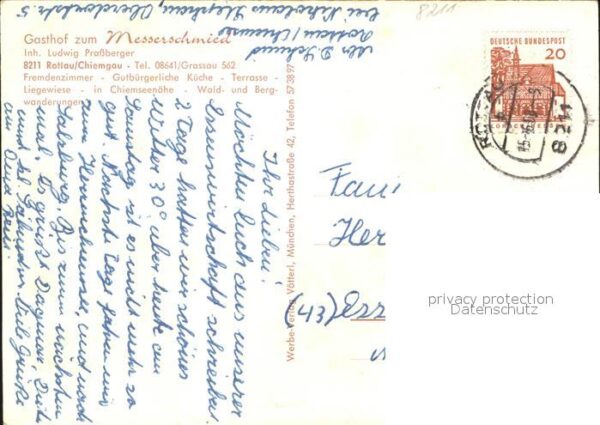 Gasthof zum Messerschmied
Inh. Ludwig Praßberger
8211 Rottau/Chiemgau - Tel. 08641/Grassau 562
Fremdenzimmer - Gutbürgerliche Küche - Terrasse -
Liegewiese - in Chiemseenähe - Wald- und Berg-
wanderungen
Abs. D. Schmid
Rottau/Chiemsee
bei Nikolaus Stephan, Oberdorfstr. 5
8211
DEUTSCHE BUNDESPOST
20
8211
Ihr Lieben!
Möchten Euch aus unserer
schreiben
2 Tage hatten wir schönes
Wetter 30° aber heute am
Samstag ist es nicht mehr so
gut. Nächste Tage fahren wir
zum und nach
Salzburg. Bis zum nächsten
mal. Es grüßt Dagmar, Dieter
und
Werbe-Verlag Vötterl, München, Herthastraße 42, Telefon 57 28 97
Fam
Her
(43) Ess
privacy protection
Datenschutz